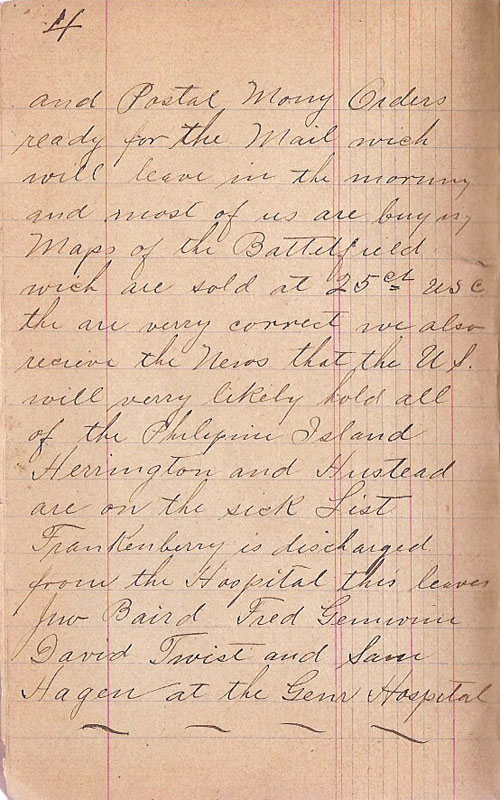 4
and Postal Mony Orders
ready for the Mail wich
will leave in the morning
and most of us are buying
Maps of the Battelfield
wich are sold at 25ct USC
the are verry correct we also
recieve the News that the U.S.
will verry likely hold all
of the Philipine Island
Herrington and Hustead
are on the sick List
Frankenberry is discharged
from the Hospital this leaves
Jno Baird Fred Gemwinn
David Twist and Sam
Hagen at the Genr Hospital